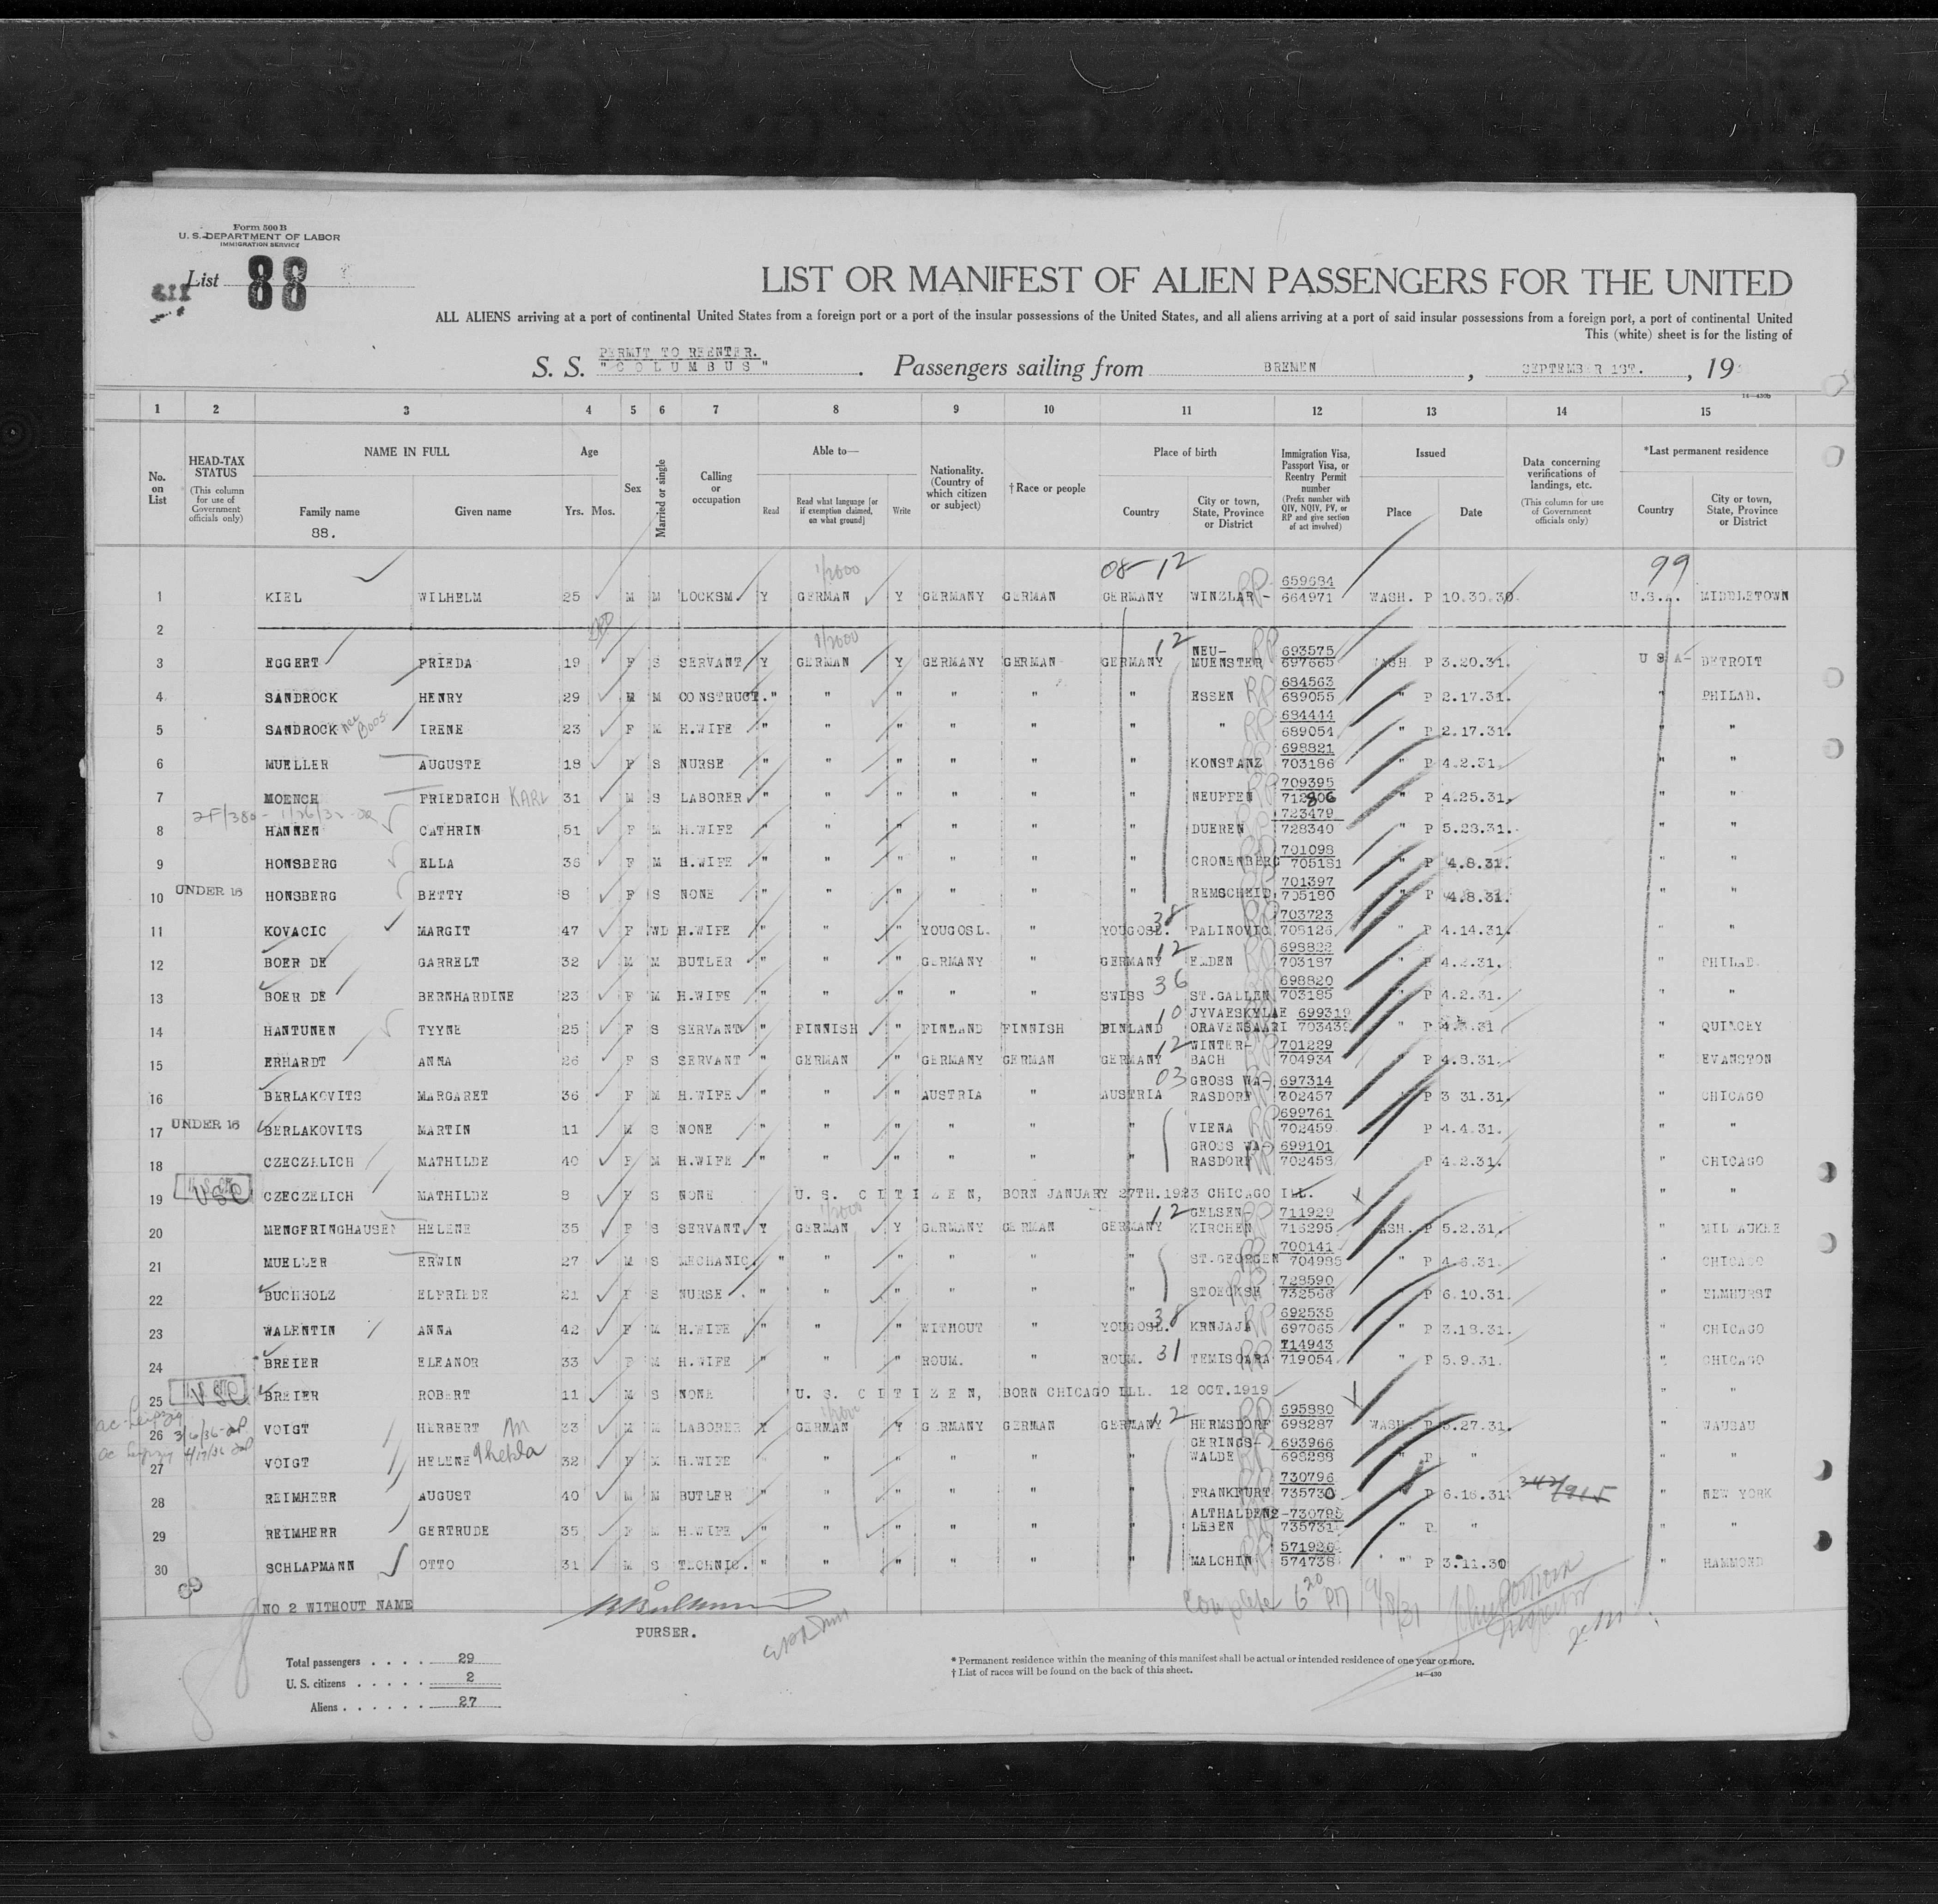 Form 500 B
U. S. DEPARTMENT OF LABOR
IMMIGRATION SERVICE
List 88
LIST OR MANIFEST OF ALIEN PASSENGERS FOR THE UNITED
ALL ALIENS arriving at a port of continental United States from a foreign port or a port of the insular possessions of the United States, and all aliens arriving at a port of said insular possessions from a foreign port, a port of continental United
This (white) sheet is for the listing of
PERMIT TO REENTER.
S. S. "COLUMBUS" . Passengers sailing from BREMEN , SEPTEMBER 1ST. , 19
14—430b
1 2 3 4 5 6 7 8 9 10 11 12 13 14 15
No. on List
HEAD-TAX STATUS (This column for use of Government officials only)
NAME IN FULL Family name Given name
88.
Age Yrs. Mos.
Sex
Married or single
Calling or occupation
Able to— Read Read what language [or if exemption claimed, on what ground] Write
Nationality. (Country of which citizen or subject)
† Race or people
Place of birth Country City or town, State, Province or District
Immigration Visa, Passport Visa, or Reentry Permit number (Prefix number with QIV, NQIV, PV, or RP and give section of act involved)
Issued Place Date
Data concerning verifications of landings, etc. (This column for use of Government officials only)
*Last permanent residence Country City or town, State, Province or District
08-12 99
1 KIEL WILHELM 25 M M LOCKSM. Y GERMAN Y GERMANY GERMAN GERMANY WINZLAR - RP 659684 664971 WASH. P 10.30.30. U.S.A. MIDDLETOWN
2
3 EGGERT FRIEDA 19 F S SERVANT Y GERMAN Y GERMANY GERMAN GERMANY 12 NEU-MUENSTER RP 693575 697665 WASH. P 3.20.31. U S A- DETROIT
4 SANDROCK HENRY 29 M M CONSTRUCT. " " " " " " ESSEN RP 684563 689055 " P 2.17.31. " PHILAD.
5 SANDROCK nee Boos IRENE 23 F M H.WIFE " " " " " " " RP 684444 689054 " P 2.17.31. " "
6 MUELLER AUGUSTE 18 F S NURSE " " " " " " KONSTANZ RP 698821 703186 " P 4.2.31. " "
7 MOENCH FRIEDRICH KARL 31 M S LABORER " " " " " " NEUFFEN RP 709395 712806 " P 4.25.31. " "
8 HANNEN CATHRIN 51 F M H.WIFE " " " " " " DUEREN RP 723479 728340 " P 5.28.31. " "
9 HONSBERG ELLA 36 F M H.WIFE " " " " " " CRONENBERG 701098 705181 " P 4.8.31. " "
10 UNDER 16 HONSBERG BETTY 8 F S NONE " " " " " " REMSCHEID 701397 705180 " P 4.8.31. " "
11 KOVACIC MARGIT 47 F WD H.WIFE " " " YOUGOSL. " YOUGOSL. 38 PALINOVIC RP 703723 708126 " P 4.14.31. " "
12 BOER DE GARRELT 32 M M BUTLER " " " GERMANY " GERMANY 12 EMDEN RP 698822 703187 " P 4.2.31. " PHILAD.
13 BOER DE BERNHARDINE 23 F M H.WIFE " " " " " SWISS 36 ST.GALLEN RP 698820 703185 " P 4.2.31. " "
14 HANTUNEN TYYNE 25 F S SERVANT " FINNISH " FINLAND FINNISH FINLAND 10 JYVAESKYLAE ORAVENSAARI 699319 " P " QUINCEY
15 ERHARDT ANNA 26 F S SERVANT " GERMAN " GERMANY GERMAN GERMANY 12 WINTER-BACH RP 701229 704934 " P 4.8.31. " EVANSTON
16 BERLAKOVITS MARGARET 36 F M H.WIFE " " " AUSTRIA " AUSTRIA 03 GROSS WA-RASDORF RP 697314 702457 " P 3 31.31. " CHICAGO
17 UNDER 16 BERLAKOVITS MARTIN 11 M S NONE " " " " " " VIENA RP 699761 702459 P 4.4.31. " "
18 CZECZELICH MATHILDE 40 F M H.WIFE " " " " " " GROSS WA-RASDORF RP 699101 702458 P 4.2.31. " CHICAGO
19 USC CZECZELICH MATHILDE 8 F S NONE U. S. CITIZEN, BORN JANUARY 27TH.1923 CHICAGO ILL. " "
20 MENGERINGHAUSEN HELENE 35 F S SERVANT Y GERMAN Y GERMANY GERMAN GERMANY 12 GELSEN-KIRCHEN RP 711929 716295 WASH. P 5.2.31. " MILWAUKEE
21 MUELLER ERWIN 27 M S MECHANIC. " " " " " " ST.GEORGEN 700141 704985 " P 4.6.31. " CHICAGO
22 BUCHHOLZ ELFRIEDE 21 F S NURSE " " " " " " STOECKSE RP 728590 732566 P 6.10.31. " ELMHURST
23 WALENTIN ANNA 42 F M H.WIFE " " " WITHOUT " YOUGOSL. 38 KRNJAJA RP 692535 697065 " P 3.18.31. " CHICAGO
24 BREIER ELEANOR 33 F M H.WIFE " " " ROUM. " ROUM. 31 TEMISOARA 714943 719054 " P 5.9.31. " CHICAGO
25 USC BREIER ROBERT 11 M S NONE U. S. CITIZEN, BORN CHICAGO ILL. 12 OCT.1919 " "
26 VOIGT HERBERT 33 M M LABORER Y GERMAN Y GERMANY GERMAN GERMANY 12 HERMSDORF 695880 698287 WASH. P 3.27.31. " WAUSAU
27 VOIGT HELENE Thekla 32 F M H.WIFE " " " " " " GERINGS-WALDE 693966 698288 " P " " "
28 REIMHERR AUGUST 40 M M BUTLER " " " " " " FRANKFURT 730796 735730 " P 6.16.31. " NEW YORK
29 REIMHERR GERTRUDE 35 F M H.WIFE " " " " " " ALTHALDENS-LEBEN 730795 735731 " P " " "
30 SCHLAPMANN OTTO 31 M S TECHNIC. " " " " " " MALCHIN RP 571926 574738 " P 3.11.30 " HAMMOND
NO 2 WITHOUT NAME
PURSER.
Complete 6 20 PM 9/8/31
Total passengers . . . . 29
U. S. citizens . . . . . 2
Aliens . . . . . . 27
* Permanent residence within the meaning of this manifest shall be actual or intended residence of one year or more.
† List of races will be found on the back of this sheet.
14—430